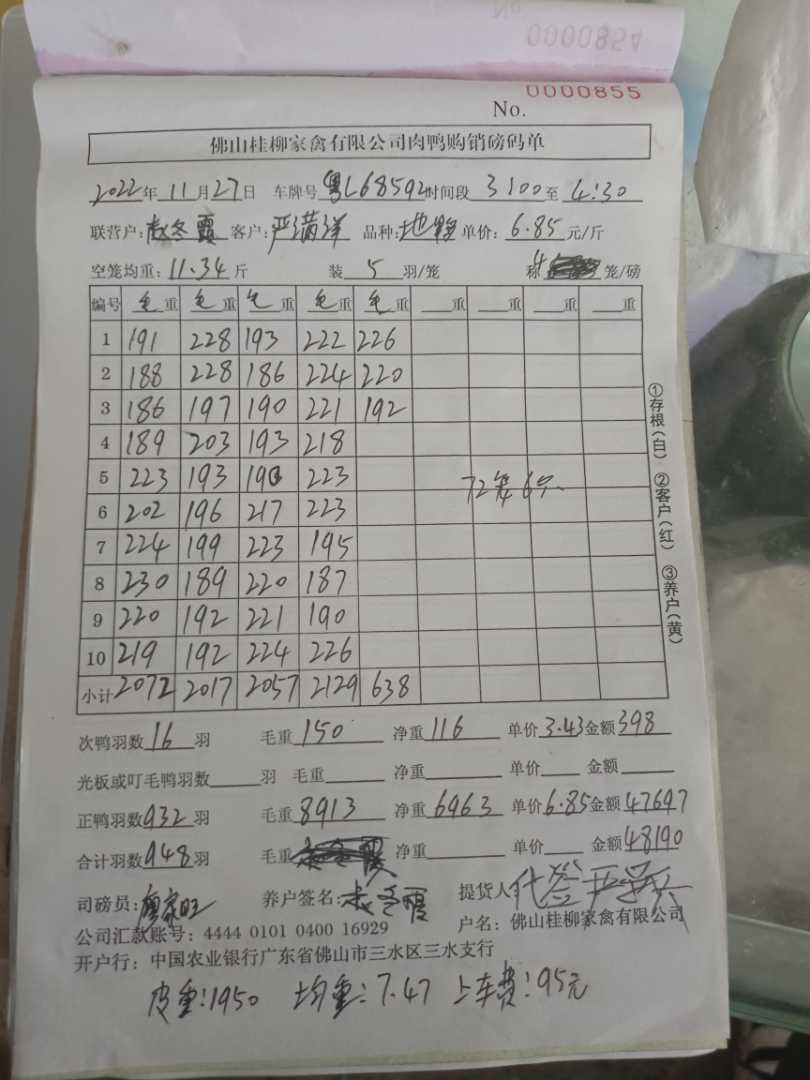 No.
0000854
0000855
No.
佛山桂柳家禽有限公司肉鸭购销磅码单
2022年11月27日 车牌号粤L68592时间段3:00至4:30
联营户:赵冬霞 客户:严满洋 品种: 单价:6.85元/斤
空笼均重:11.34斤 装5羽/笼 称4笼/磅
编号 毛重 毛重 毛重 毛重 毛重 重 重 重 重
1 191 228 193 222 226
2 188 228 186 224 220
3 186 197 190 221 192
4 189 203 193 218
5 223 193 190 223 72笼6只
6 202 196 217 223
7 224 199 223 195
8 230 189 220 187
9 220 192 221 190
10 219 192 224 226
小计 2072 2017 2057 2129 638
次鸭羽数16羽 毛重150 净重116 单价3.43金额398
光板或叮毛鸭羽数 羽 毛重 净重 单价 金额
正鸭羽数932羽 毛重8913 净重6963 单价6.85金额47697
合计羽数948羽 毛重 净重 单价 金额48190
司磅员:廖家旺 养户签名:赵冬霞 提货人代签
公司汇款账号:4444 0101 0400 16929 户名:佛山桂柳家禽有限公司
开户行:中国农业银行广东省佛山市三水区三水支行
皮重:1950 均重:7.47 上车费:95元
①存根(白) ②客户(红) ③养户(黄)